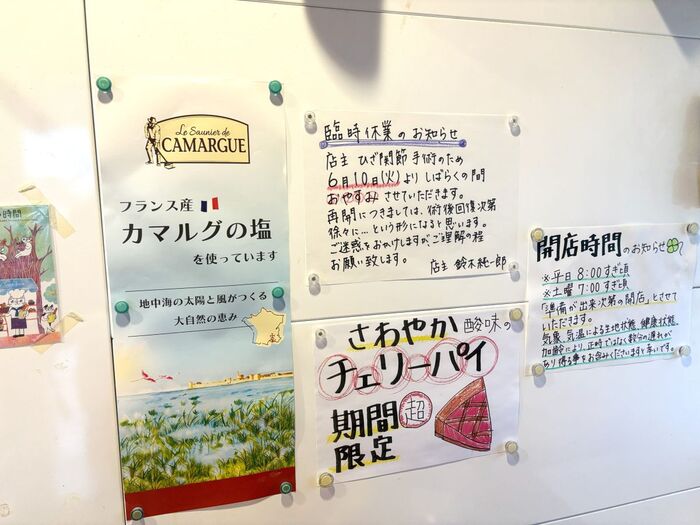 Le Saunier de
CAMARGUE
フランス産
カマルグの塩
を使っています
地中海の太陽と風がつくる
大自然の恵み
臨時休業のお知らせ
店主 ひざ関節手術のため
6月10日(火)よりしばらくの間
おやすみさせていただきます。
再開につきましては、術後回復次第
徐々に…という形になると思います。
ご迷惑をおかけしますがご理解の程
お願い致します。
店主 鈴木純一郎
さわやか酸味の
チェリーパイ
超
期間
限定
開店時間のお知らせ
※平日 8:00すぎ頃
※土曜 7:00すぎ頃
「準備が出来次第の開店」とさせて
いただきます。
気象、気温による生地状態、健康状態、
加齢により、正時ではなく数分の遅れが
あり得る事をお含みくださいますと幸いです。
時間